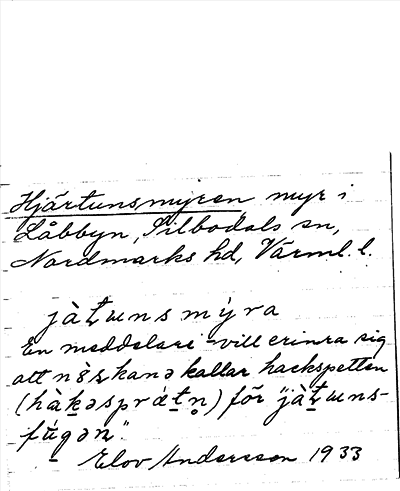 Hjärtunsmyren myr i
Låbbyn, Silbodals sn,
Nordmarks hd, Värml. l.
jàt̲ɯnsmýra
En meddelare vill erinra sig
att kallar hackspetten
för "jàt̲ɯns-
fùgən".
Elov Andersson 1933